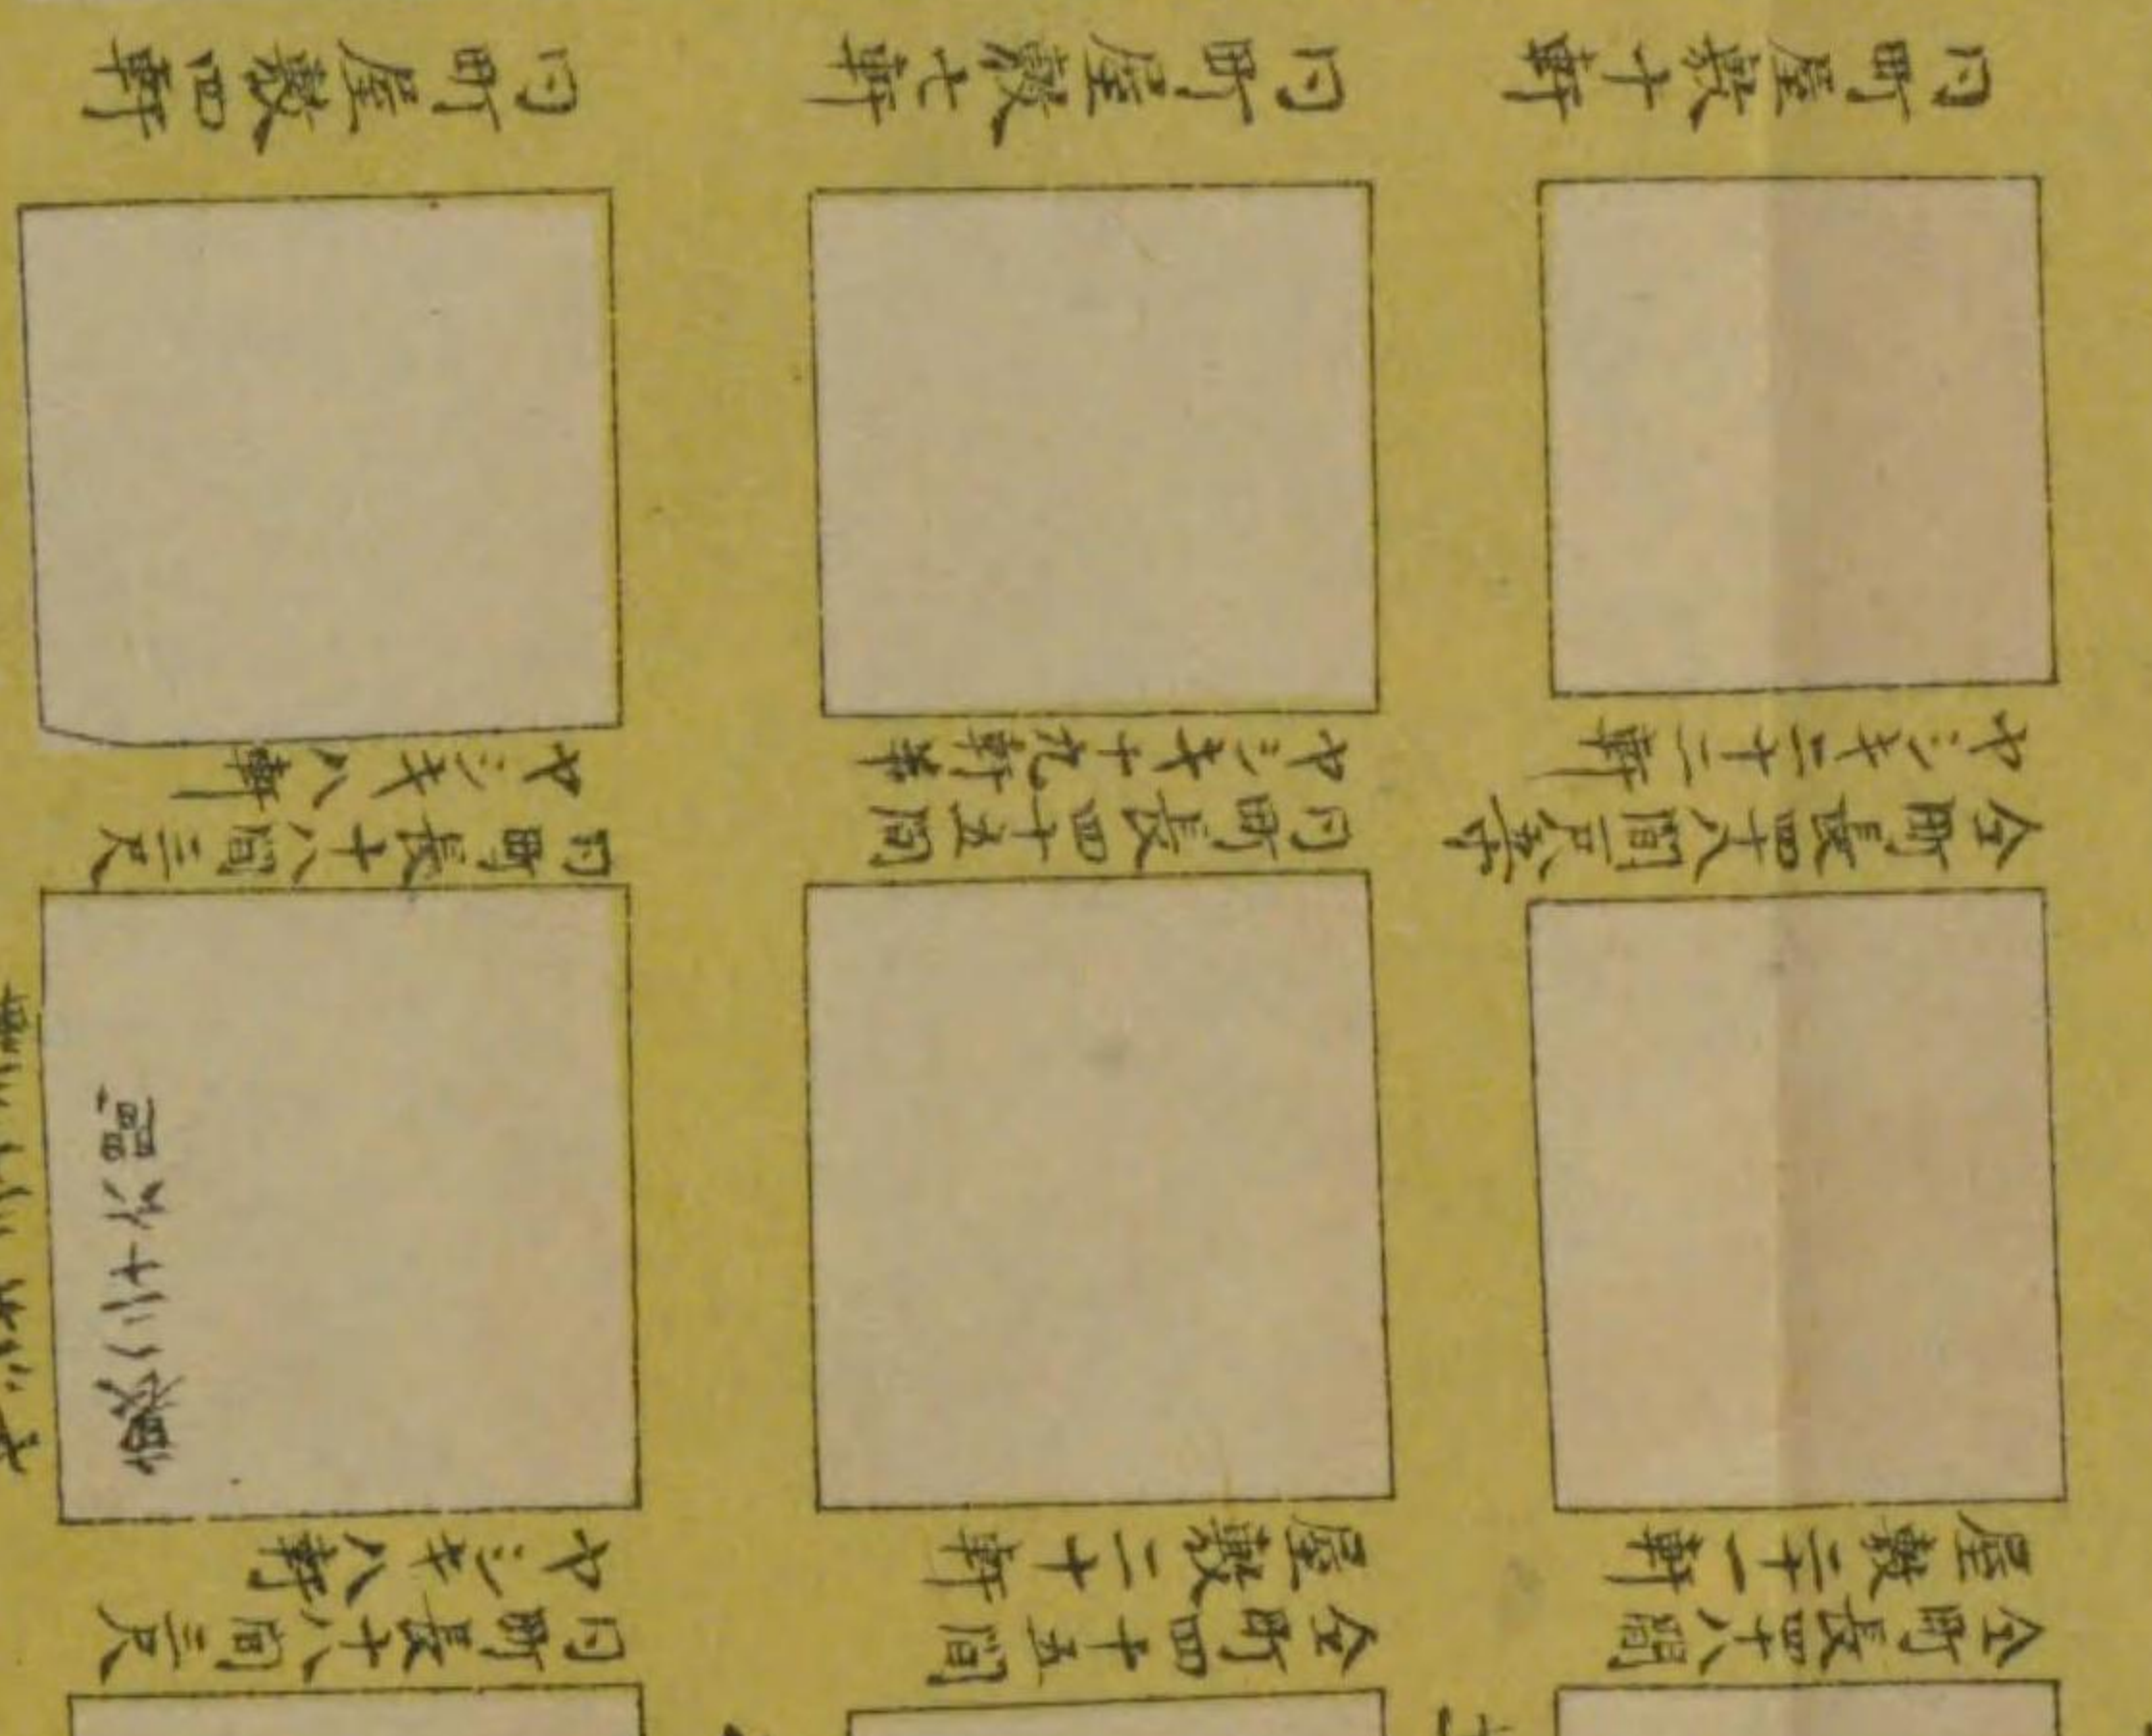 同町屋敷十軒
同町屋敷七軒
同町屋敷四軒
仝町長四十八間一尺半
ヤシキ二十二軒
同町長四十五間
ヤシキ十九軒半
同町長十八間三尺
ヤシキ八軒
仝町長四十八間
屋敷二十一軒
仝町四十五間
屋敷二十軒
同町長十八間三尺
ヤシキ八軒